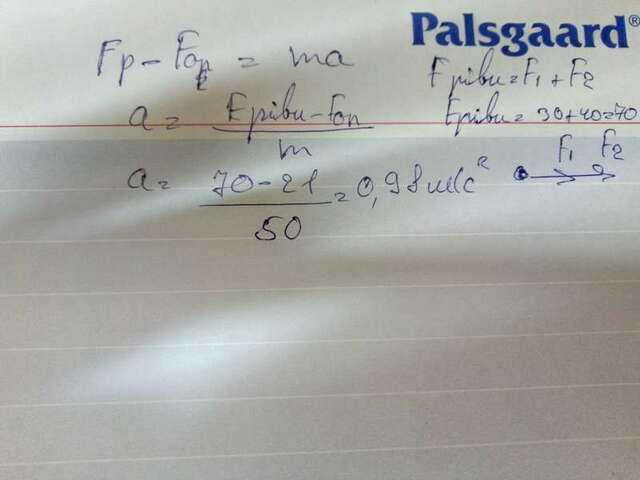 Palsgaard®
Fp - Fоп = ma
Fрівн = F1 + F2
a = Fрівн - Fоп / m
Fрівн = 30+40=70
F1 F2
a = 70-21 / 50 = 0,98 м/с²